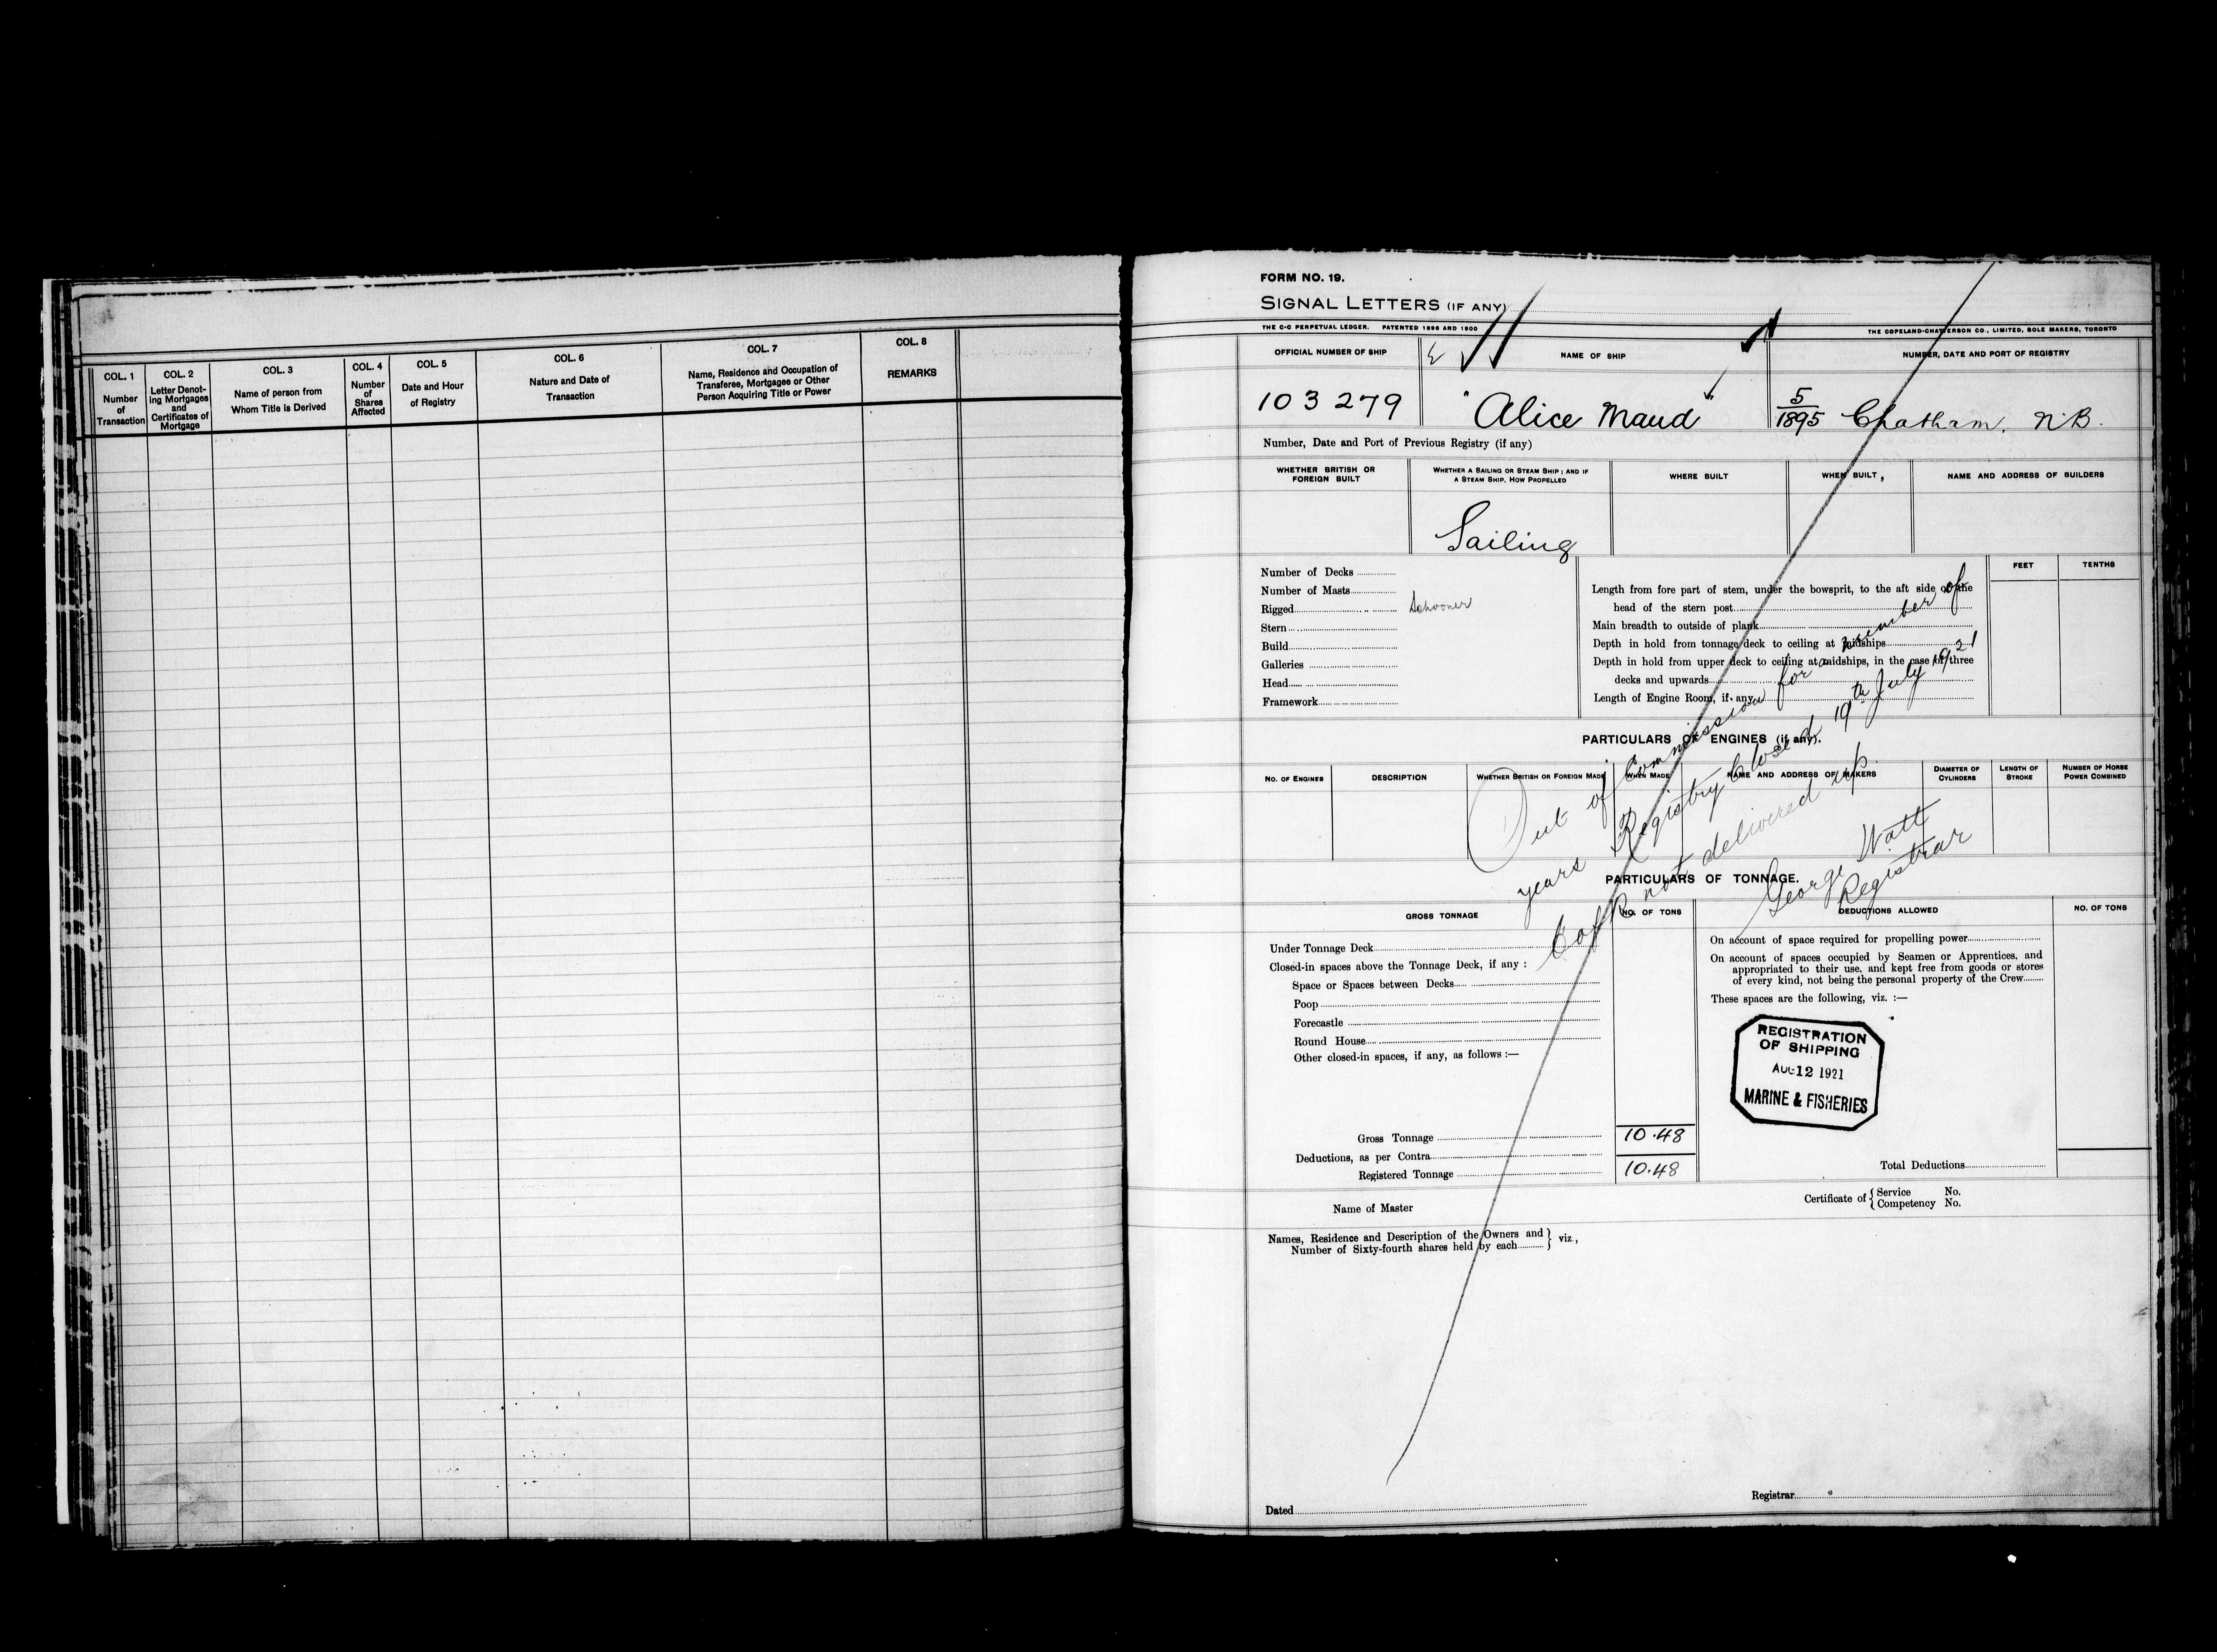 COL. 1
Number
of
Transaction
COL. 2
Letter Denot-
ing Mortgages
and
Certificates of
Mortgage
COL. 3
Name of person from
Whom Title is Derived
COL. 4
Number
of
Shares
Affected
COL. 5
Date and Hour
of Registry
COL. 6
Nature and Date of
Transaction
COL. 7
Name, Residence and Occupation of
Transferee, Mortgagee or Other
Person Acquiring Title or Power
COL. 8
REMARKS
FORM NO. 19.
SIGNAL LETTERS (IF ANY)
THE C-C PERPETUAL LEDGER. PATENTED 1896 AND 1900
THE COPELAND-CHATTERSON CO., LIMITED, SOLE MAKERS, TORONTO
OFFICIAL NUMBER OF SHIP
NAME OF SHIP
NUMBER, DATE AND PORT OF REGISTRY
103279
"Alice Maud"
5/1895 Chatham. N.B.
Number, Date and Port of Previous Registry (if any)
WHETHER BRITISH OR
FOREIGN BUILT
WHETHER A SAILING OR STEAM SHIP; AND IF
A STEAM SHIP, HOW PROPELLED
WHERE BUILT
WHEN BUILT,
NAME AND ADDRESS OF BUILDERS
Sailing
Number of Decks
Number of Masts
Rigged Schooner
Stern
Build
Galleries
Head
Framework
Length from fore part of stem, under the bowsprit, to the aft side of the
head of the stern post
Main breadth to outside of plank
Depth in hold from tonnage deck to ceiling at midships
Depth in hold from upper deck to ceiling at midships, in the case of three
decks and upwards
Length of Engine Room, if any
FEET
TENTHS
PARTICULARS OF ENGINES (if any).
NO. OF ENGINES
DESCRIPTION
WHETHER BRITISH OR FOREIGN MADE
WHEN MADE
NAME AND ADDRESS OF MAKERS
DIAMETER OF
CYLINDERS
LENGTH OF
STROKE
NUMBER OF HORSE
POWER COMBINED
Out of Commission for a number of
years Registry Closed 19th July 1921
C of R not delivered up.
George Watt
Registrar
PARTICULARS OF TONNAGE.
GROSS TONNAGE
NO. OF TONS
DEDUCTIONS ALLOWED
NO. OF TONS
Under Tonnage Deck
Closed-in spaces above the Tonnage Deck, if any :
Space or Spaces between Decks
Poop
Forecastle
Round House
Other closed-in spaces, if any, as follows :—
Gross Tonnage 10.48
Deductions, as per Contra
Registered Tonnage 10.48
On account of space required for propelling power
On account of spaces occupied by Seamen or Apprentices, and
appropriated to their use, and kept free from goods or stores
of every kind, not being the personal property of the Crew
These spaces are the following, viz. :—
REGISTRATION
OF SHIPPING
AUG 12 1921
MARINE & FISHERIES
Total Deductions
Name of Master
Certificate of { Service No.
Competency No.
Names, Residence and Description of the Owners and } viz.,
Number of Sixty-fourth shares held by each
Dated
Registrar